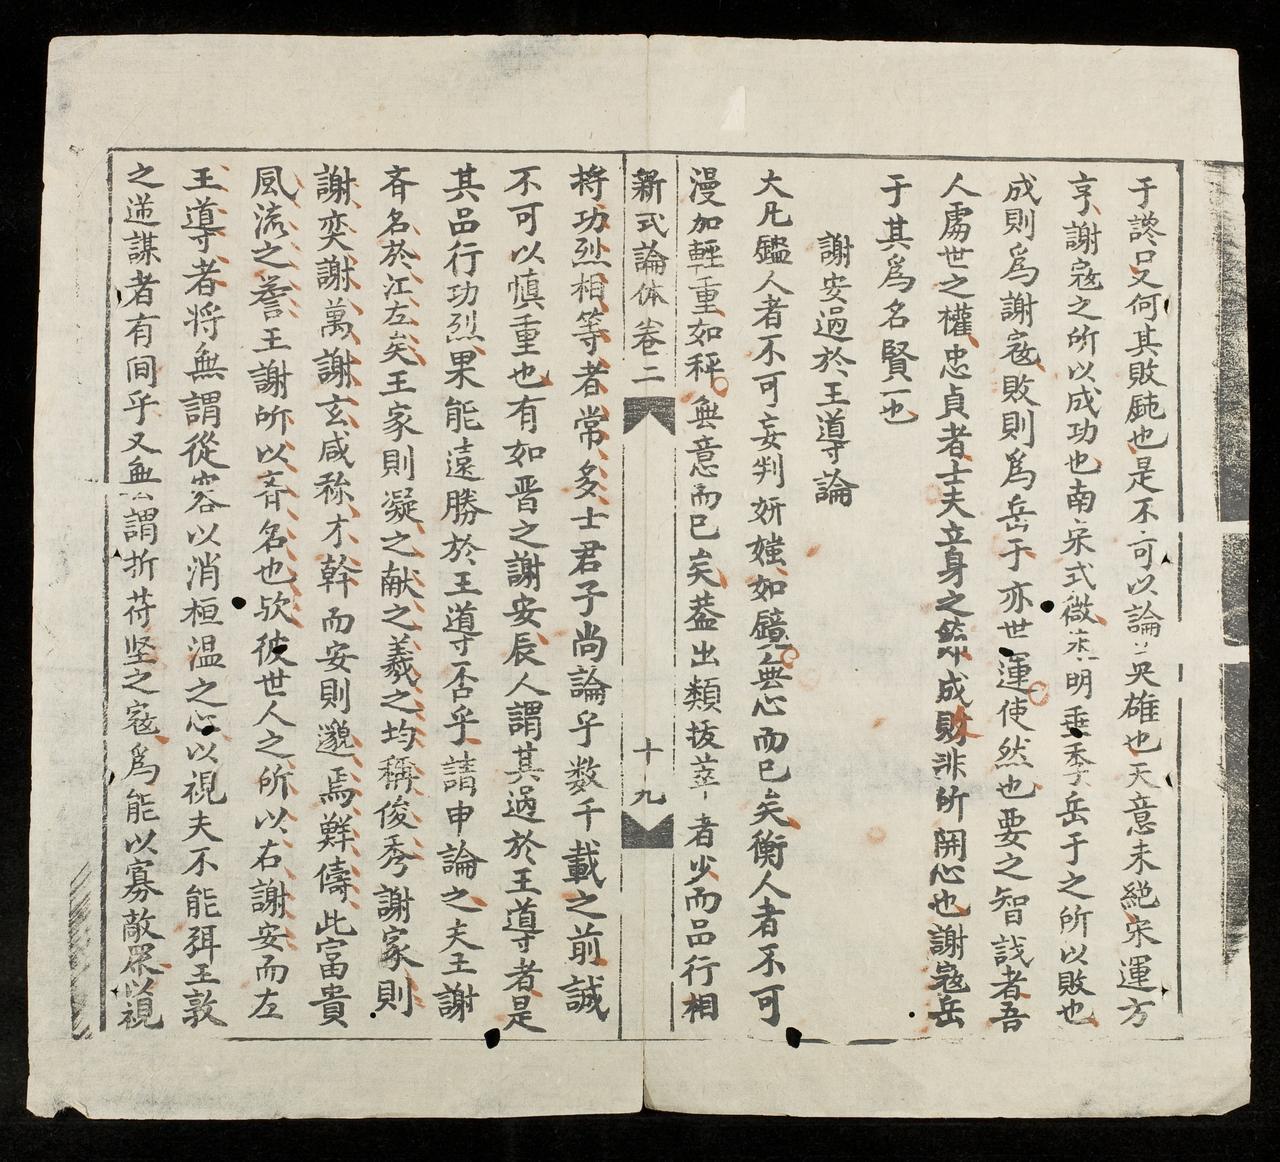 于諮口又何其敗衂也是不可以論英雄也天意未絶宋運方
亨謝寇之所以成功也南宋式微未明垂季岳于之所以敗也
成則爲謝寇敗則爲岳于亦世運使然也要之智謀者吾
人處世之權忠貞者士夫立身之節成敗非所開心也謝寇岳
于其爲名賢一也
謝安過於王導論
大凡鑑人者不可妄判妍媸如鏡無心而已矣衡人者不可
漫加輕重如秤無意而已矣葢出類拔萃者少而品行相
新式論体卷二 十九
將功烈相等者常多士君子尚論乎数千載之前誠
不可以慎重也有如晋之謝安辰人謂其過於王導者是
其品行功烈果能遠勝於王導否乎請申論之夫王謝
斉名於江左矣王家則凝之献之羲之均稱俊秀謝家則
謝奕謝萬謝玄咸称才幹而安則邈焉鮮儔此富貴
風流之譽王謝所以斉名也欤彼世人之所以右謝安而左
王導者将無謂從容以消桓温之心以視夫不能弭王敦
之逆謀者有间乎又無謂折苻坚之寇爲能以寡敵眾以視